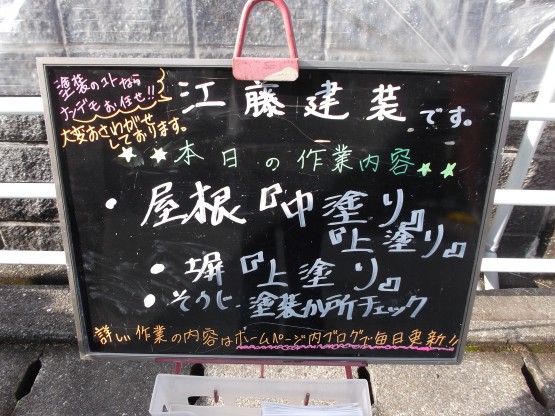 塗装のコトなら
ナンデモお任せ!!
大変おさわがせ
しております。
江藤建装です。
★★本日の作業内容★★
・屋根『中塗り』
『上塗り』
・塀『上塗り』
・そうじ、塗装か所チェック
詳しい作業の内容はホームページ内ブログで毎日更新!!